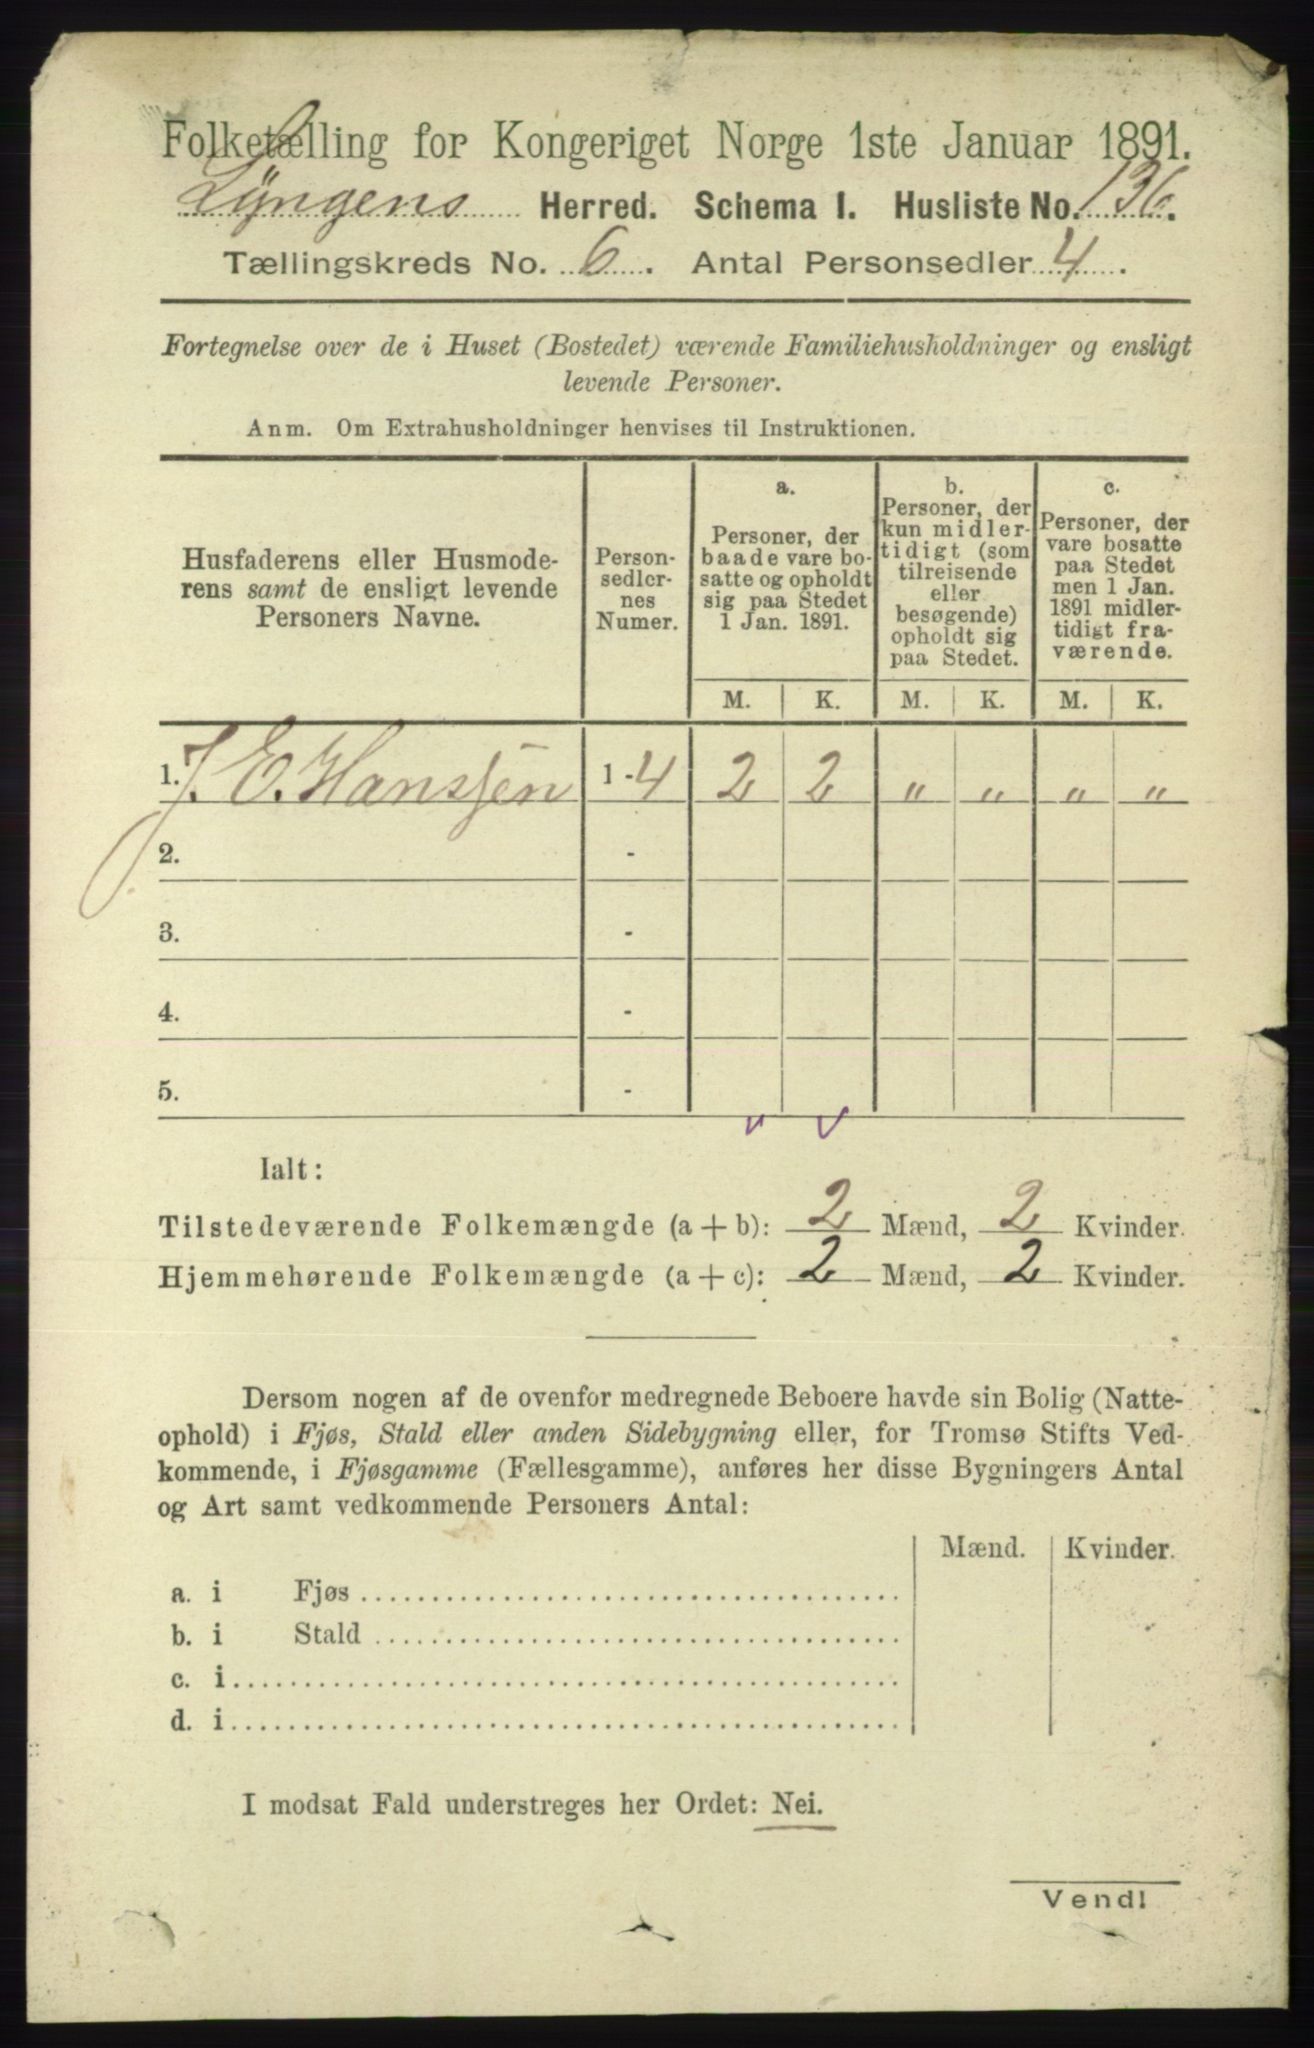 Folketælling for Kongeriget Norge 1ste Januar 1891.
Lyngens Herred. Schema I. Husliste No. 136.
Tællingskreds No. 6. Antal Personsedler 4.
Fortegnelse over de i Huset (Bostedet) værende Familiehusholdninger og ensligt
levende Personer.
Anm. Om Extrahusholdninger henvises til Instruktionen.
Husfaderens eller Husmode-
rens samt de ensligt levende
Personers Navne.
Person-
sedler-
nes
Numer.
a.
Personer, der
baade vare bo-
satte og opholdt
sig paa Stedet
1 Jan. 1891.
b.
Personer, der
kun midler-
tidigt (som
tilreisende
eller
besøgende)
opholdt sig
paa Stedet.
c.
Personer, der
vare bosatte
paa Stedet
men 1 Jan.
1891 midler-
tidigt fra-
værende.
M. K. M. K. M. K.
1. J. E. Hanssen 1-4 2 2 " " " "
2. -
3. -
4. -
5. -
Ialt:
Tilstedeværende Folkemængde (a + b): 2 Mænd, 2 Kvinder.
Hjemmehørende Folkemængde (a + c): 2 Mænd, 2 Kvinder.
Dersom nogen af de ovenfor medregnede Beboere havde sin Bolig (Natte-
ophold) i Fjøs, Stald eller anden Sidebygning eller, for Tromsø Stifts Ved-
kommende, i Fjøsgamme (Fællesgamme), anføres her disse Bygningers Antal
og Art samt vedkommende Personers Antal:
Mænd. Kvinder.
a. i Fjøs
b. i Stald
c. i
d. i
I modsat Fald understreges her Ordet: Nei.
Vend!